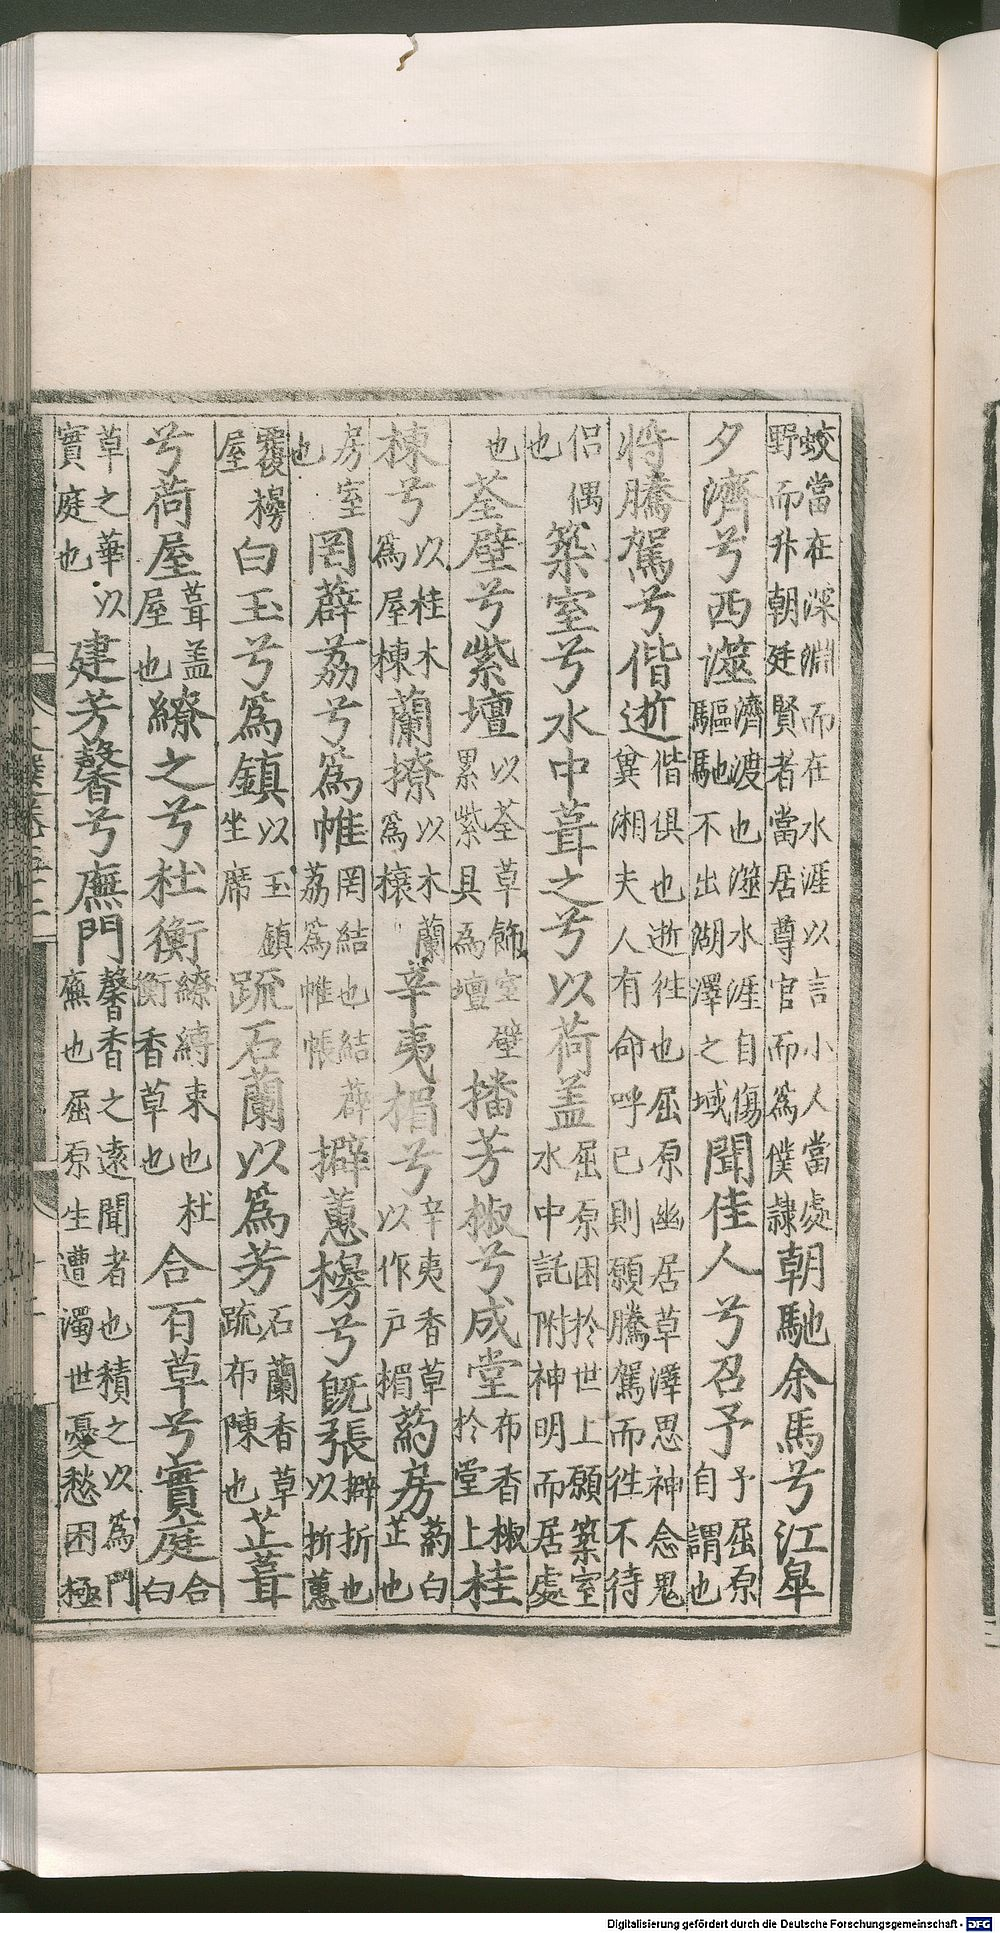 蛟當在深淵而在水涯以言小人當處野而升朝廷賢者當居尊官而爲僕隷朝馳余馬兮江臯
夕濟兮西澨濟渡也澨水涯自傷驅馳不出湖澤之域聞佳人兮召予予屈原自謂也
將騰駕兮偕逝偕俱也逝徃也屈原幽居草澤思神念鬼兾湘夫人有命呼已則願騰駕而徃不待
侣偶也築室兮水中葺之兮以荷盖屈原困扵世上願築室水中託附神明而居處
也荃壁兮紫壇以荃草飾室壁累紫具為壇播芳椒兮成堂布香椒扵堂上桂
棟兮以桂木爲屋棟蘭橑以木蘭爲榱辛夷楣兮辛夷香草以作戶楣葯房葯白芷也
房室也罔薜荔兮爲帷罔結也結薜荔爲帷帳擗蕙櫋兮旣張擗折也以折蕙
覆櫋屋白玉兮爲鎮以玉鎮坐席疏石蘭以爲芳石蘭香草疏布陳也芷葺
兮荷屋葺盖屋也繚之兮杜衡繚縛束也杜衡香草也合百草兮實庭合白
草之華以實庭也建芳馨兮廡門馨香之遠聞者也積之以爲門廡也屈原生遭濁世憂愁困極
Digitalisierung gefördert durch die Deutsche Forschungsgemeinschaft - DFG